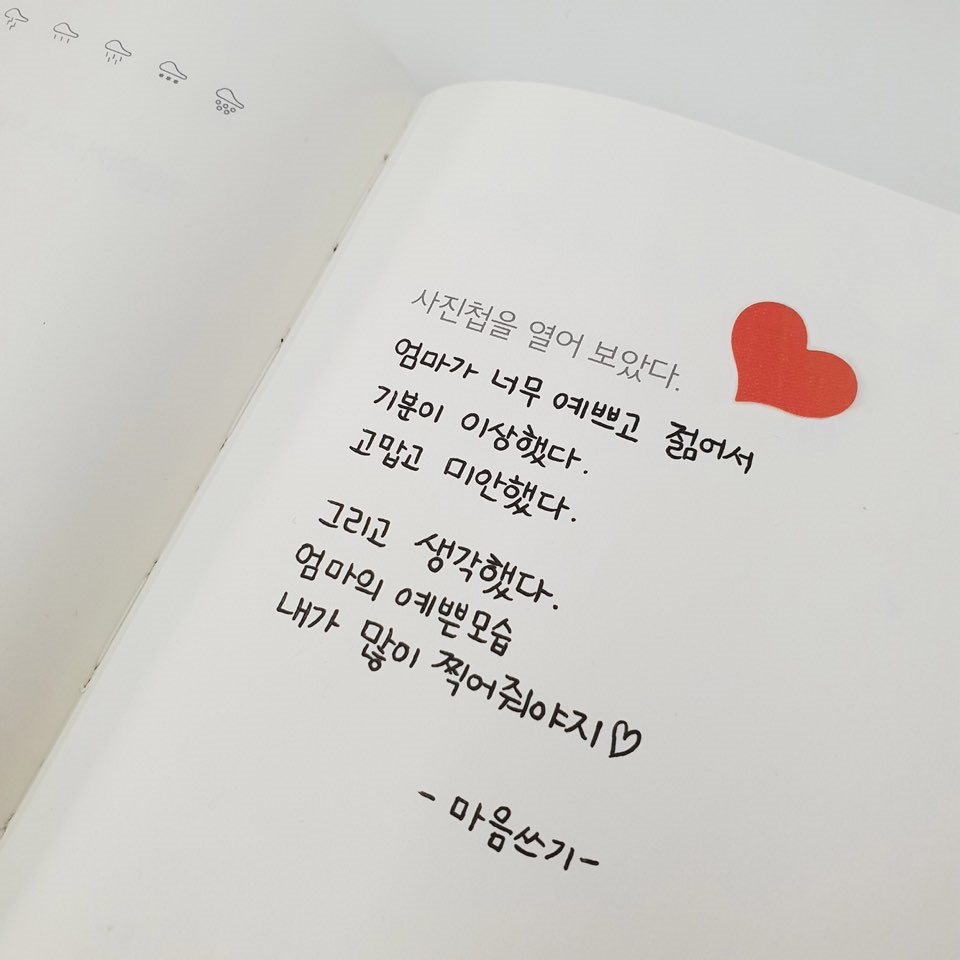 사진첩을 열어 보았다.
엄마가 너무 예쁘고 젊어서
기분이 이상했다.
고맙고 미안했다.
그리고 생각했다.
엄마의 예쁜모습
내가 많이 찍어줘야지♡
- 마음쓰기-